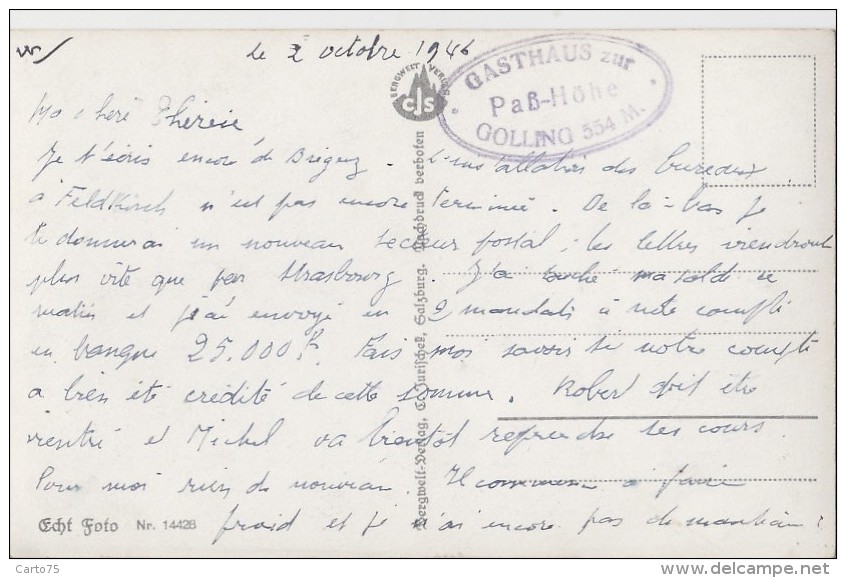 le 2 octobre 1946
GASTHAUS zur
Paß-Höhe
GOLLING 554 M.
BERGWELT VERLAG
CJS
Ma chère Thérèse
Je t'écris encore de Brégenz. L'installation des bureaux
à Feldkirsch n'est pas encore terminé. De là-bas je
te donnerai un nouveau secteur postal; les lettres viendront
plus vite que par Strasbourg. J'ai touché ma solde ce
matin et j'ai envoyé en 2 mandats à notre compte
en banque 25.000 F. Fais moi savoir si notre compte
a bien été crédité de cette somme. Robert doit être
rentré et Michel va bientôt reprendre ses cours.
Pour moi rien de nouveau. Il commence à faire
froid et je n'ai encore pas de manteau!
Bergwelt-Verlag, C. Jurischek, Salzburg. Nachdruck verboten
Echt Foto Nr. 14428
Carto75
www.delcampe.net